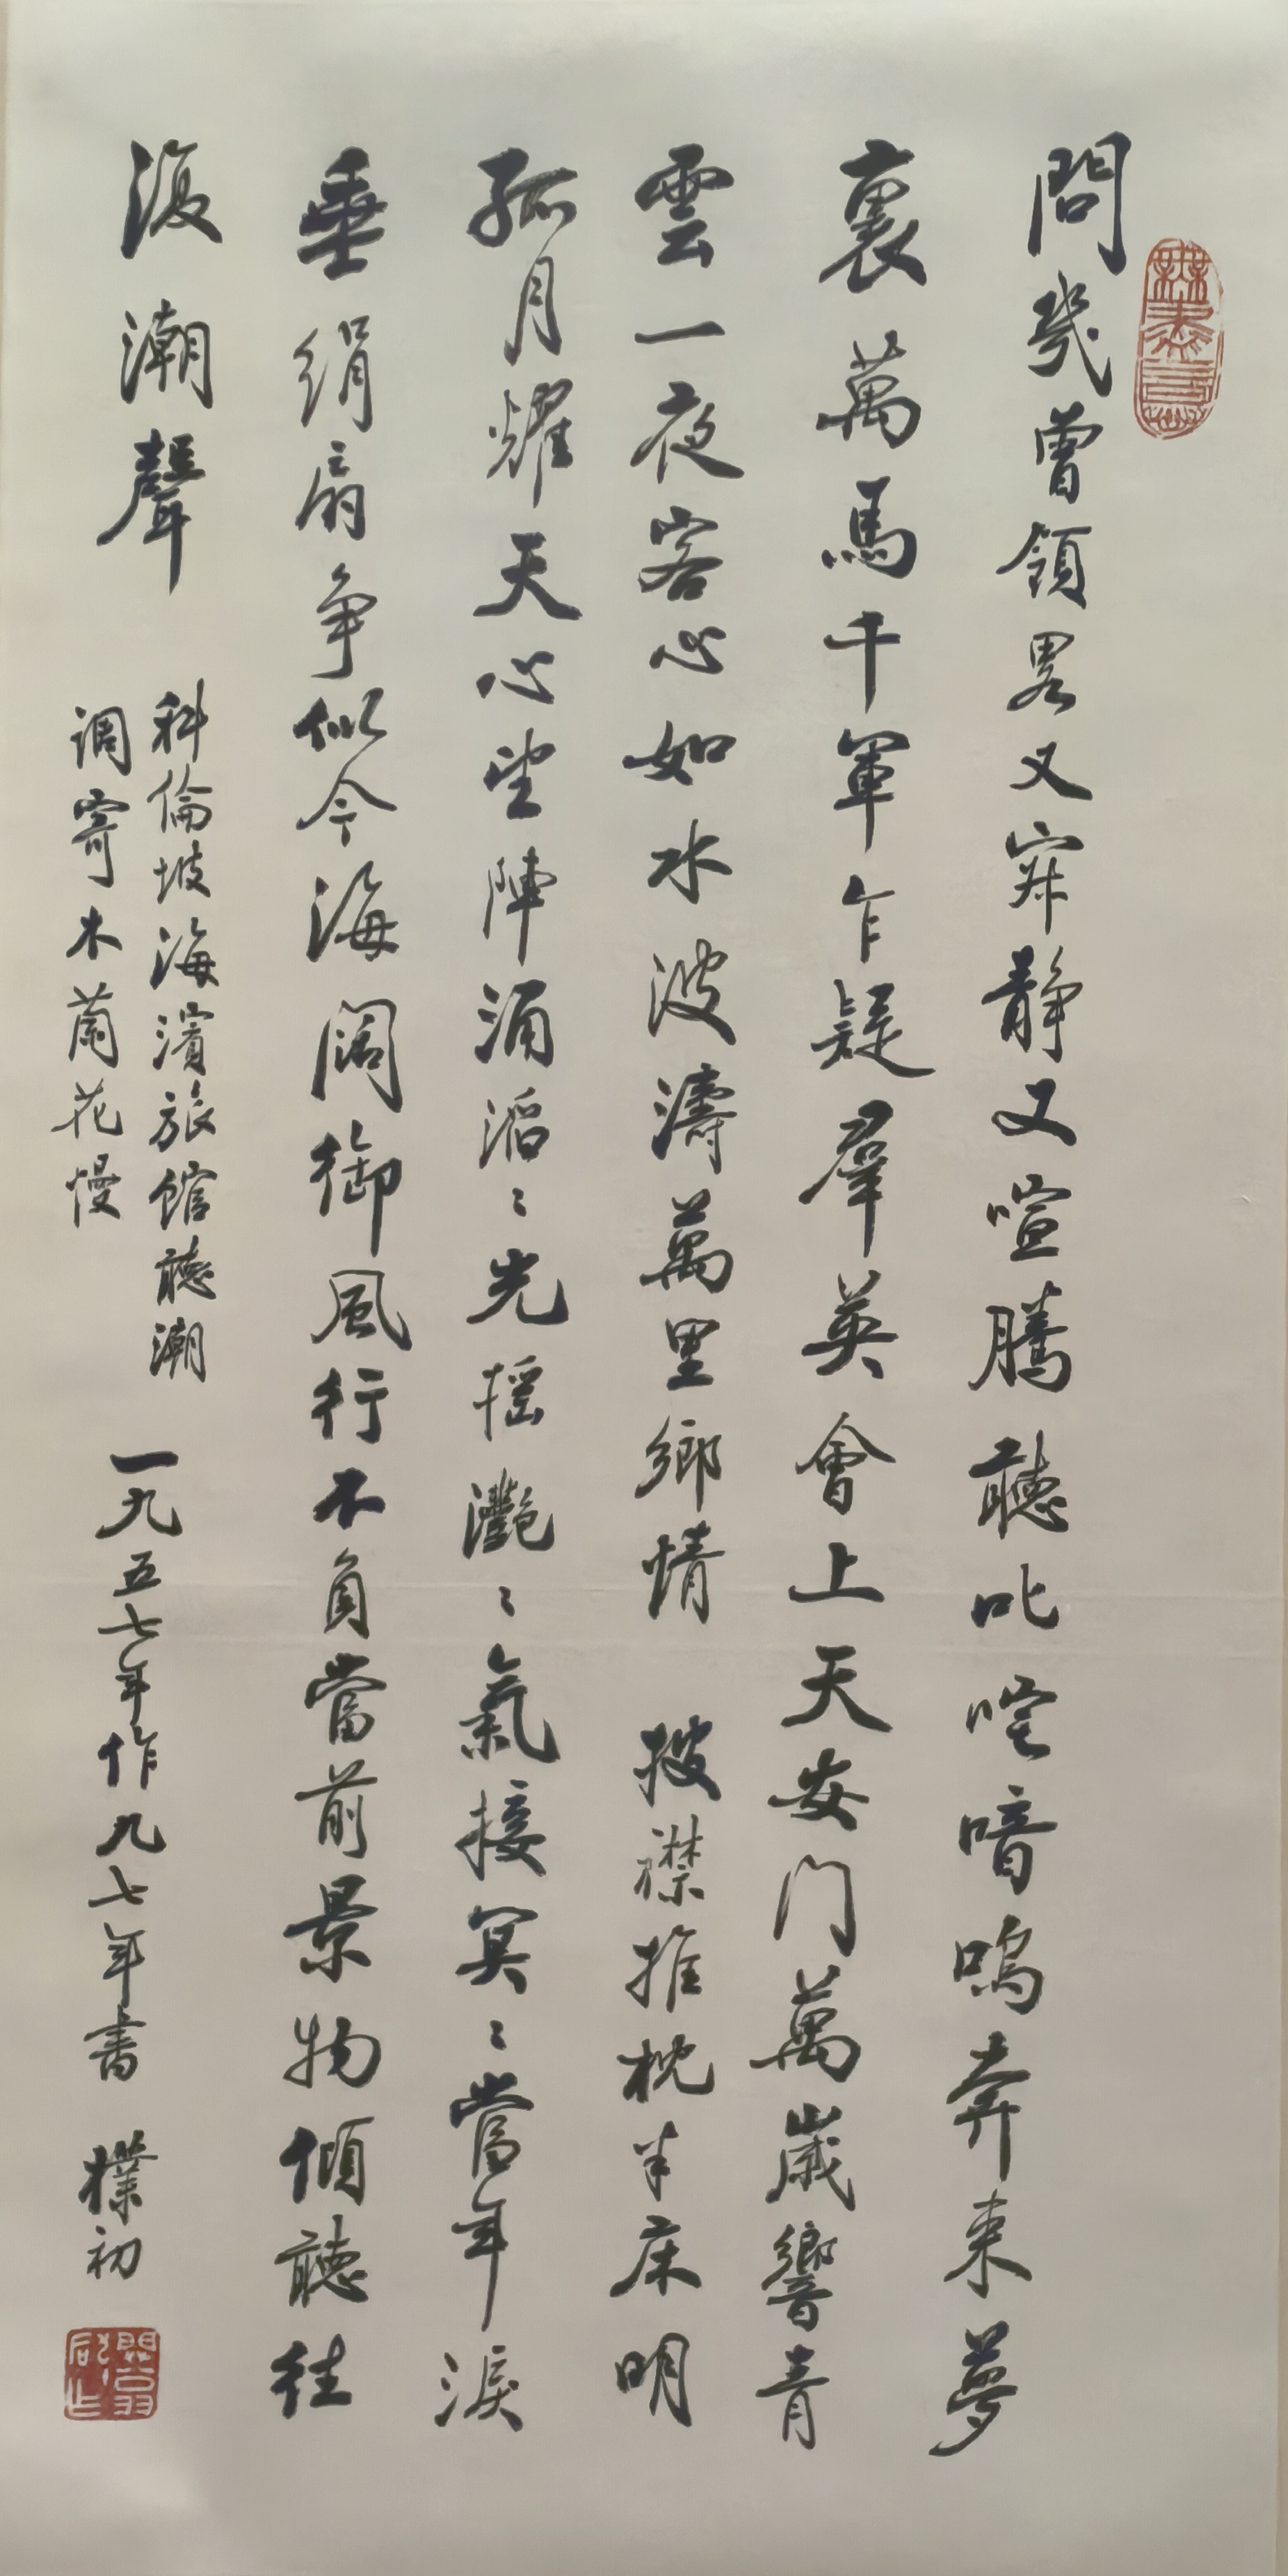 問幾曾領畧又寂静又喧騰聽叱咤喑嗚奔来夢
裏萬馬千軍乍疑羣英會上天安门萬歲響青
雲一夜客心如水波濤萬里鄉情 披襟推枕半床明
孤月耀天心望陣涌滔〻光摇灔〻氣接冥〻當年淚
垂絹扇争似今海闊御風行不負當前景物傾聽往
復潮聲
科倫坡海濱旅館聽潮
调寄木蘭花慢
一九五七年作九七年書 樸初